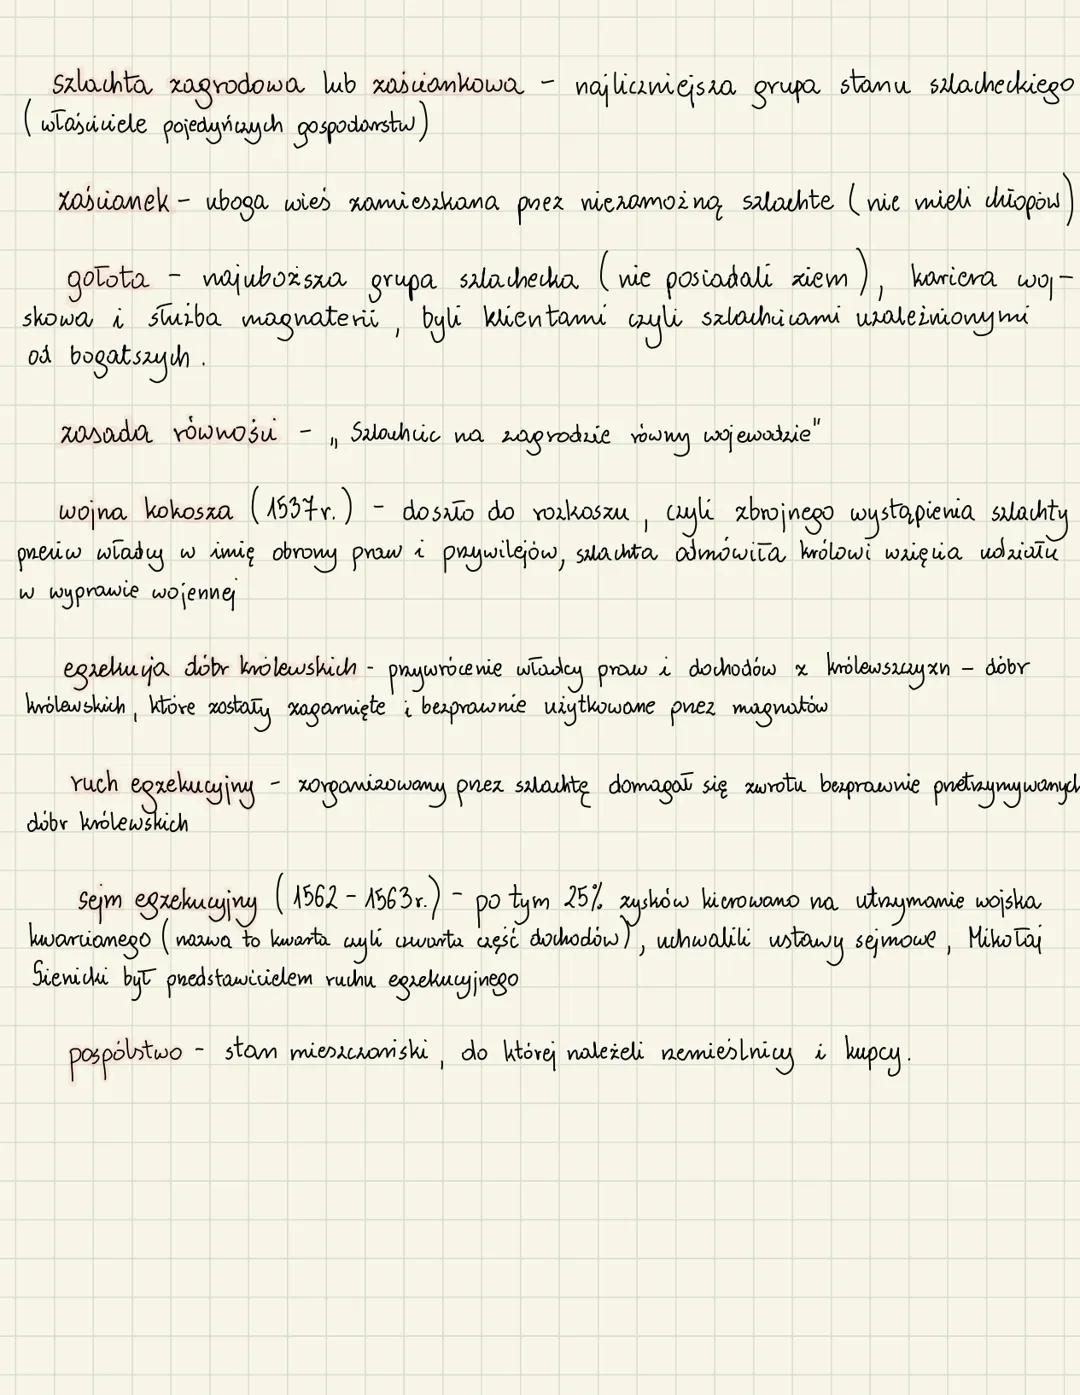 szlachta zagrodowa lub zaściankowa - najliczniejsza grupa stanu szlacheckiego
(właściciele pojedyńczych gospodarstw)
zaścianek - uboga wieś zamieszkana przez niezamożną szlachte (nie mieli chłopów)
gołota - najuboższa grupa szlachecka (nie posiadali ziem), kariera woj-
skowa i służba magnaterii, byli klientami czyli szlachcicami uzależnionymi
od bogatszych.
zasada równości - „Szlachcic na zagrodzie równy wojewodzie"
wojna kokosza (1537r.) - doszło do rozkoszu, czyli zbrojnego wystąpienia szlachty
przeciw władcy w imię obrony praw i przywilejów, szlachta odmówiła królowi wzięcia udziału
w wyprawie wojennej
egzekucja dóbr królewskich - przywrócenie władcy praw i dochodów z królewszczyzn - dóbr
królewskich, które zostały zagarnięte i bezprawnie użytkowane przez magnatów
ruch egzekucyjny - zorganizowany przez szlachtę domagał się zwrotu bezprawnie przetrzymywanych
dóbr królewskich
sejm egzekucyjny (1562-1563r.) - po tym 25% zysków kierowano na utrzymanie wojska
kwarcianego (nazwa to kwarta czyli czwarta część dochodów), uchwalili ustawy sejmowe, Mikołaj
Sienicki był przedstawicielem ruchu egzekucyjnego
pospólstwo - stan mieszczański, do której należeli rzemieślnicy i kupcy.